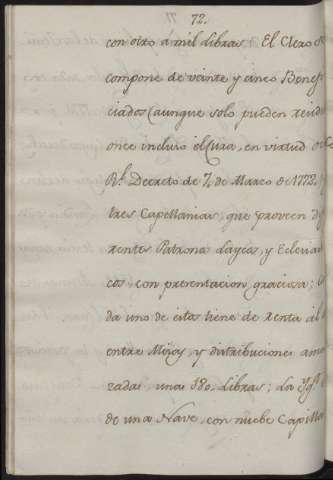 72.
con otro á mil libras El Clero se
compone de veinte y cinco Benefi
ciados (aunque solo pueden residir
once incluso el Cura, en virtud de
Rl. Decreto de 7, de Marzo de 1772.)
tres Capellanias, que proveen di
rentes Patronos Laycos, y Eclesias
cos con presentacion graciosa; Ca
da uno de estos tiene de renta al
entre Misas, y distribuciones amo
radas, unas 180. libras; La Ygª.
de una Nave, con nuebe Capillas